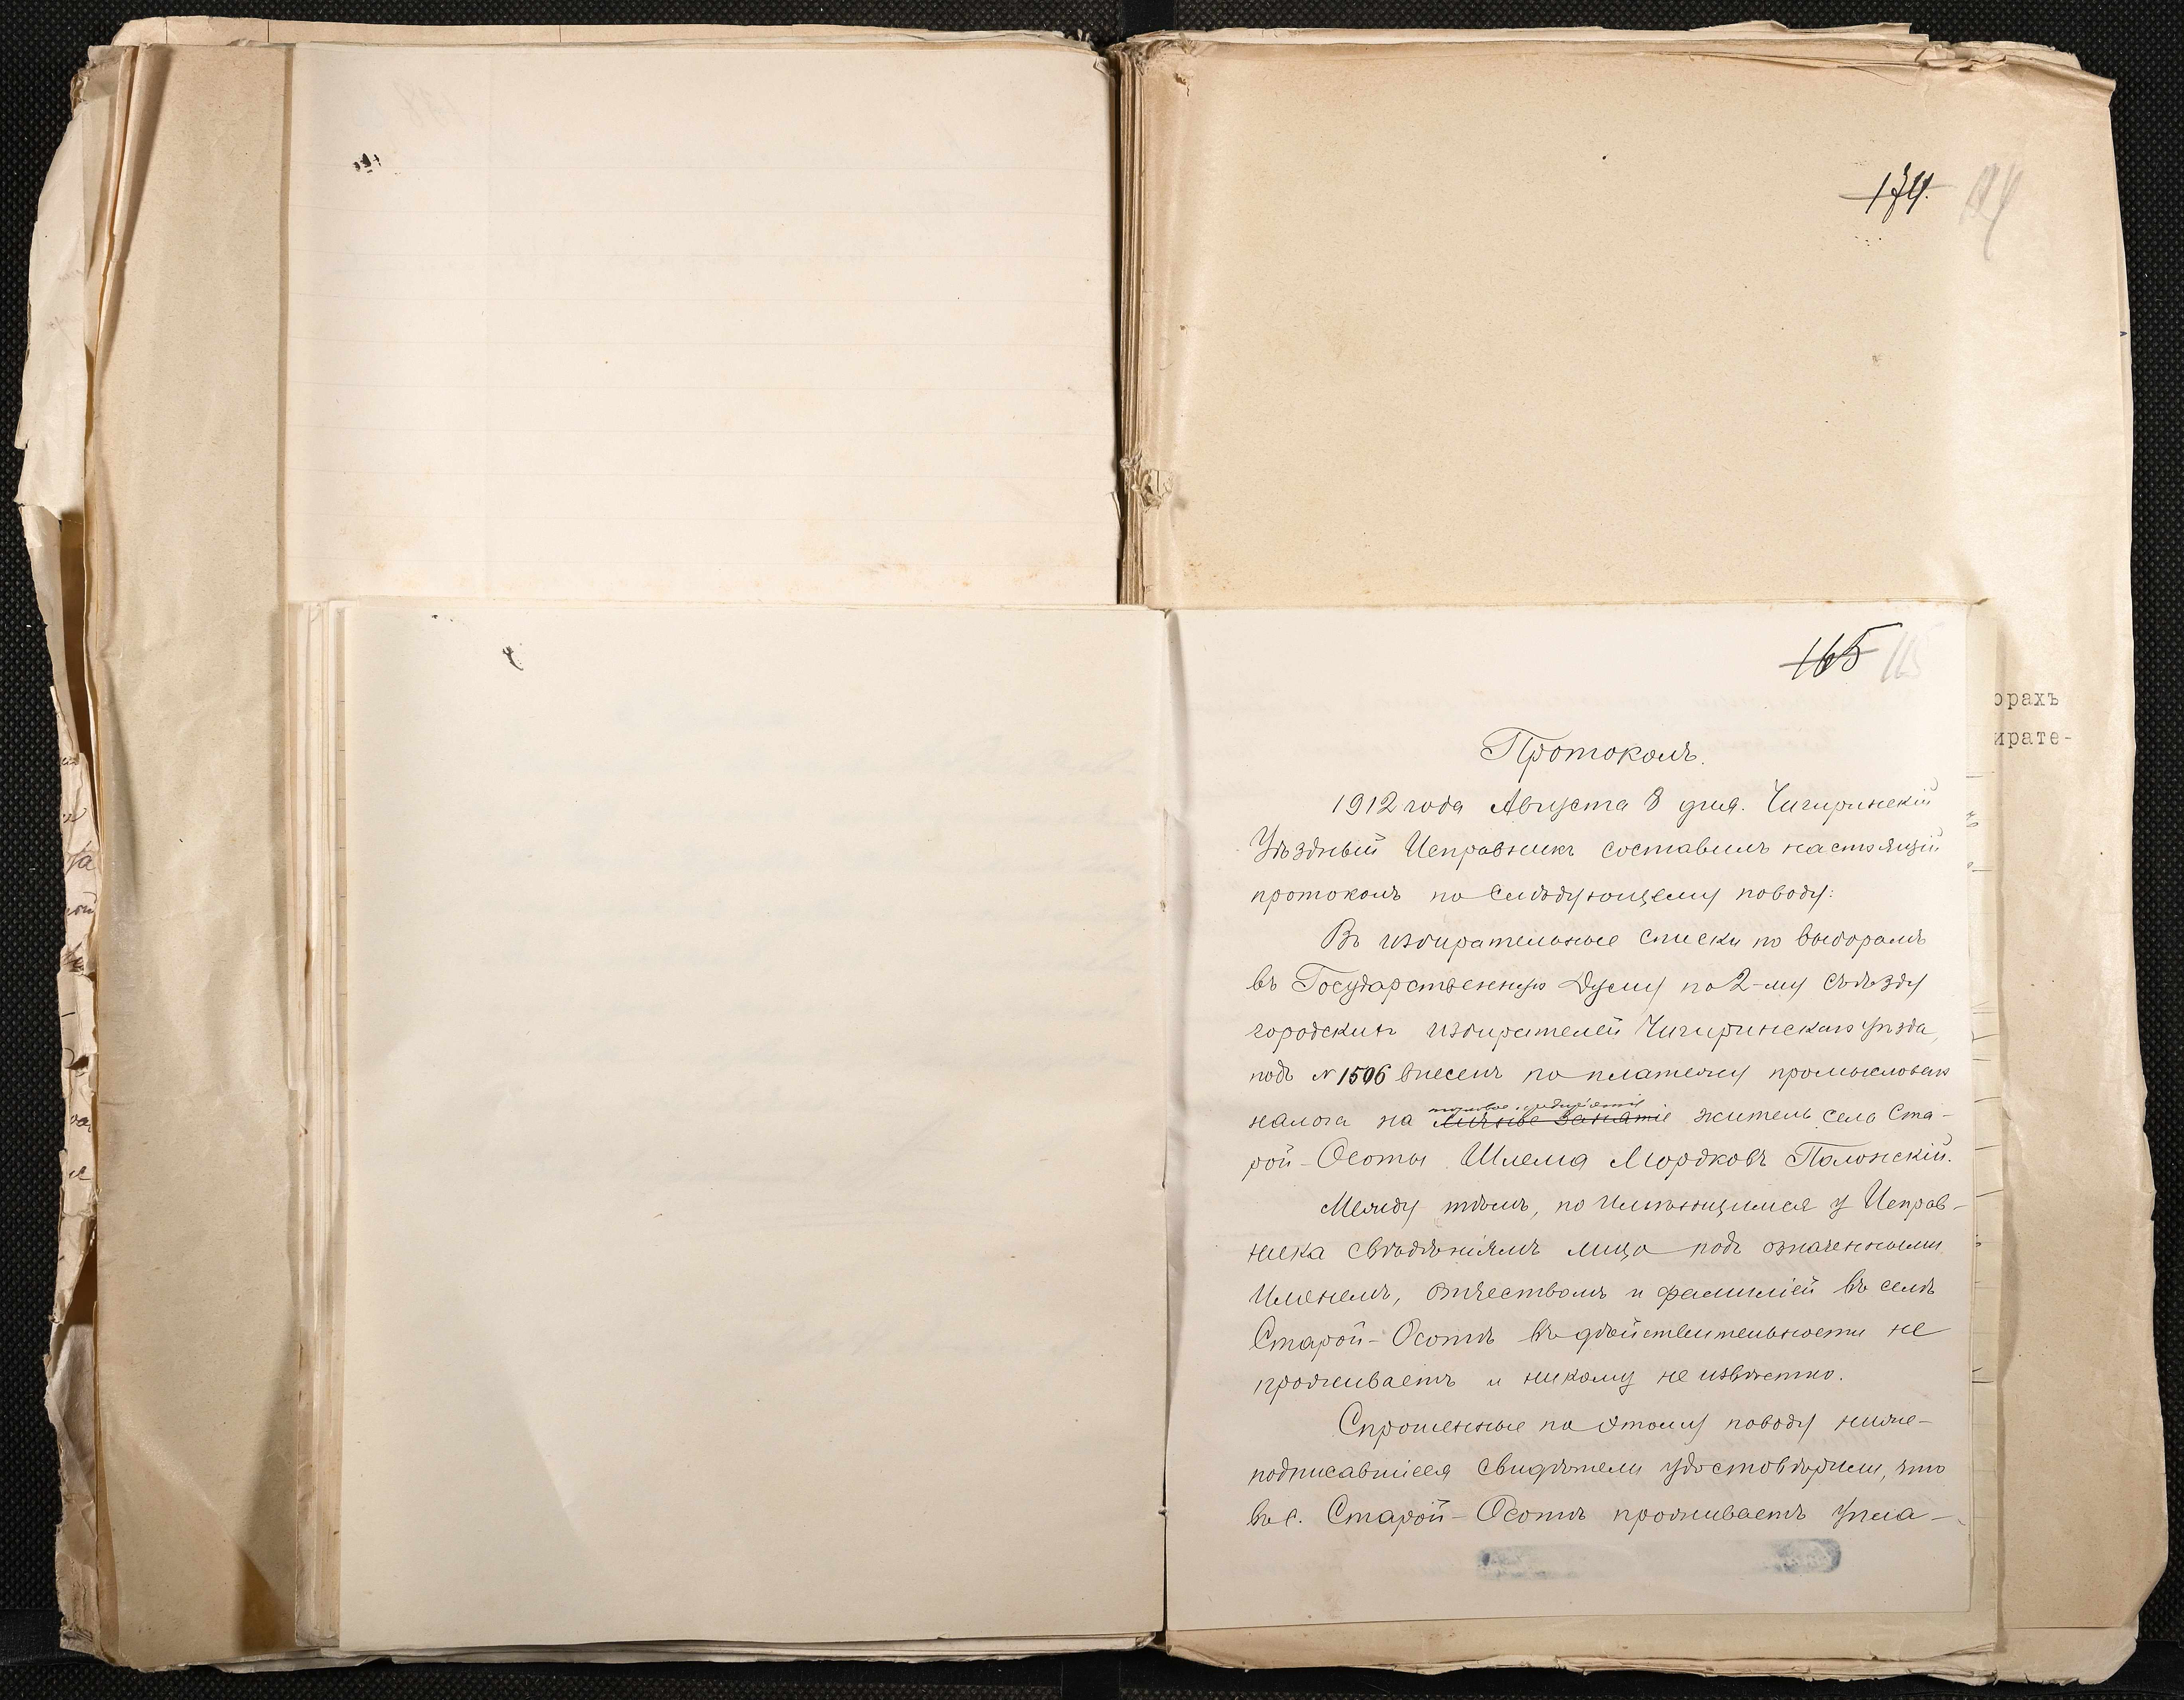 174.
165 115
орахъ
ирате-
Протоколъ.
1912 года Августа 8 дня. Чигиринскій
Уѣздный Исправникъ составилъ настоящій
протоколъ по слѣдующему поводу:
Въ избирательные списки по выборамъ
въ Государственную Думу по 2-му съѣзду
городскихъ избирателей Чигиринскаго уѣзда,
подъ № 1506 внесенъ по платежу промысловаго
торговое предпріятіе
налога на личное занятіе житель села Ста-
рой-Осоты Шлема Мордковъ Полонскій.
Между тѣмъ, по имѣющимся у Исправ-
ника свѣдѣніямъ лицо подъ означенными
именемъ, отчествомъ и фамиліей въ селѣ
Старой-Осотѣ въ дѣйствительности не
проживаетъ и никому не извѣстно.
Спрошенные по этому поводу ниже-
подписавшіеся свидѣтели удостовѣрили, что
въ с. Старой-Осотѣ проживаетъ упла-